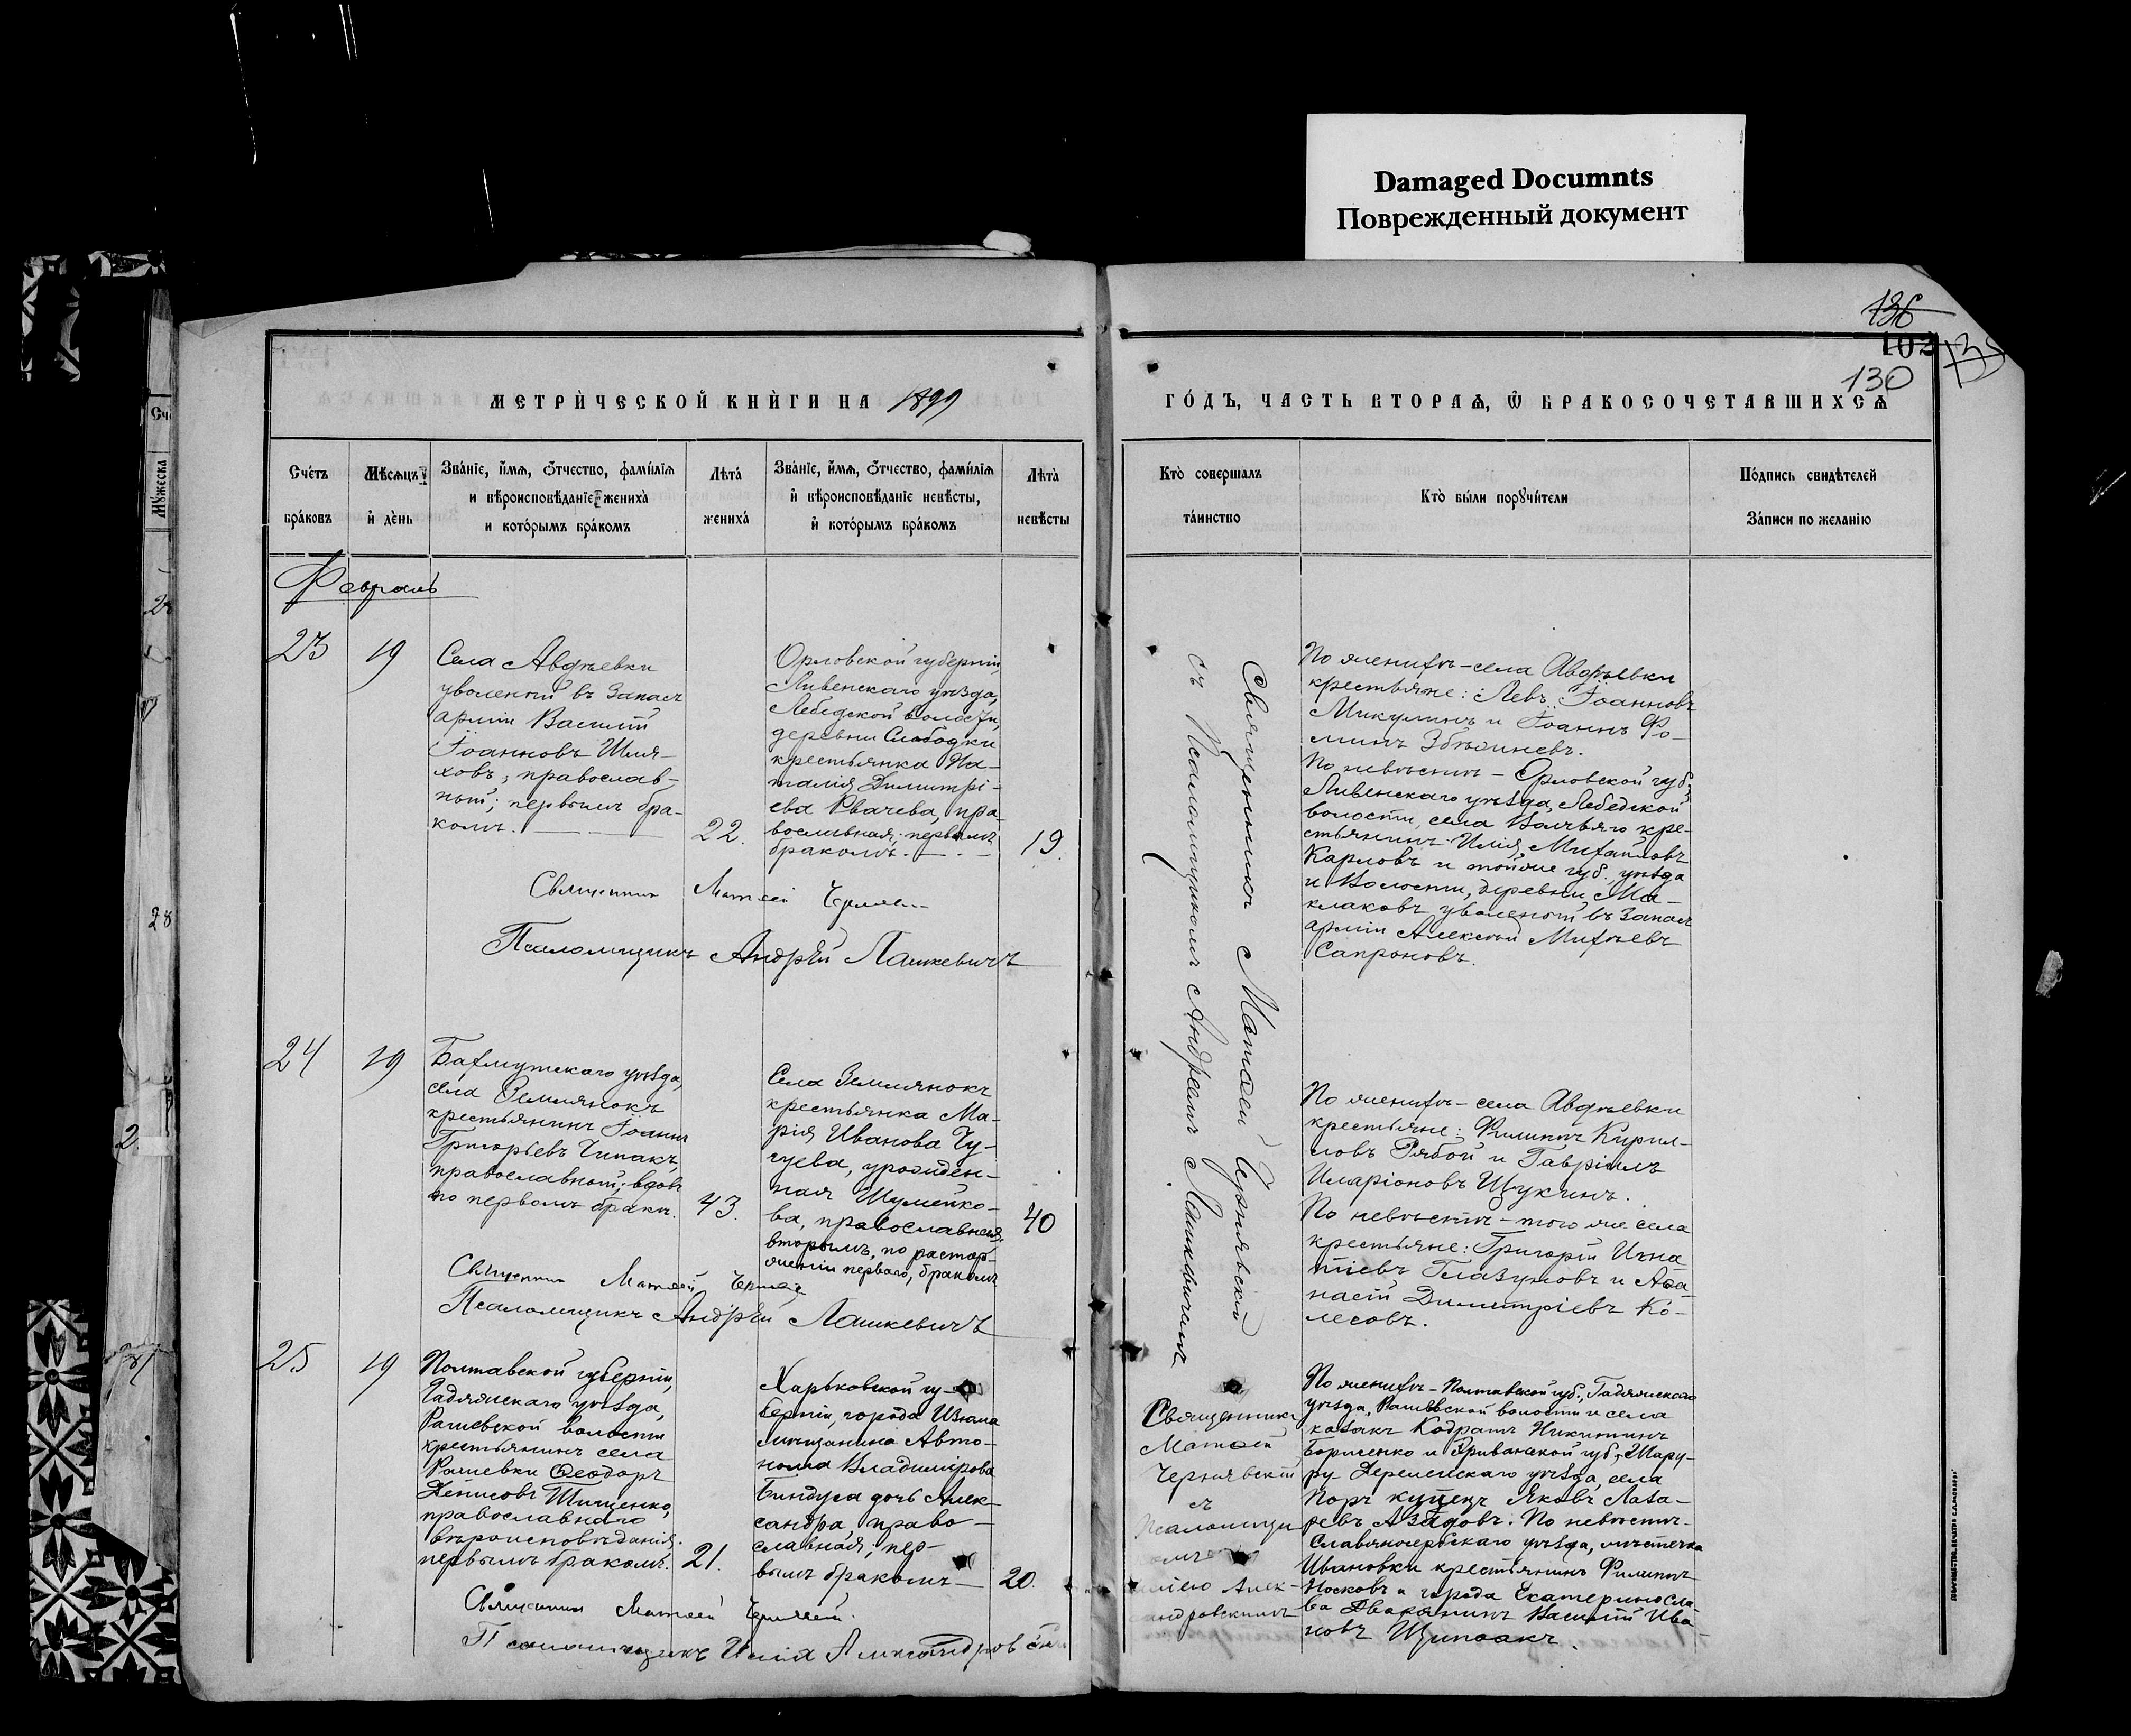 Damaged Documnts
Поврежденный документ
136
102
130
МЕТРИ́ЧЕСКОЙ КНИ́ГИ НА 1899
ГО́ДЪ, ЧАСТЬ ВТОРАѦ, Ѿ БРАКОСОЧЕТАВШИХСѦ
Сче́тъ
бра́ковъ
Мѣ́сяцъ
и҆ де́нь
Зва́нїе, и҆́мѧ, ѻ҆́тчество, фами́лїѧ
и вѣроисповѣ́данїе жениха̀
и кото́рымъ бра́комъ
Лѣта̀
жениха̀
Зва́нїе, и҆́мѧ, ѻ҆́тчество, фами́лїѧ
и҆ вѣроисповѣ́данїе невѣ́сты,
и҆ кото́рымъ бра́комъ
Лѣта̀
невѣ́сты
Кто̀ совершалъ
та́инство
Кто̀ бы́ли порꙋчи́тели
По́дпись свидѣ́телей
За́писи по жела́нїю
Февраль
23
19
Села Авдѣевки
уволеный въ Запасъ
арміи Василій
Іоанновъ Шля-
ховъ, православ-
ный; первымъ бра-
комъ.
22.
Орловской губерніи,
Ливенскаго уѣзда,
Лебедской волости,
деревни Слободки
крестьянка На-
талія Димитрі-
ева Рвачева, пра-
вославная; первымъ
бракомъ.
19.
Священникъ Матѳей
Псаломщикъ Андрѣй Лашкевичъ
Священникъ Матѳей Чернявскій
съ Псаломщикомъ Андреемъ Лашкевичемъ
По женихѣ - села Авдѣевки
крестьяне: Левъ Іоанновъ
Микулинъ и Іоаннъ Ѳо-
минъ
По невѣстѣ - Орловской губ.
Ливенскаго уѣзда, Лебедской
волости, села кре-
стьянинъ Илія Михайловъ
Карловъ и тойже губ., уѣзда
и волости, деревни Ма-
клаковъ уволеный въ Запасъ
арміи Алексѣй Михѣевъ
Сапроновъ.
24
19
Бахмутскаго уѣзда,
села Землянокъ
крестьянинъ Іоаннъ
Григорьевъ Чипакъ,
православный; вдовъ
по первомъ бракѣ.
43.
Села Землянокъ
крестьянка Ма-
рія Иванова Чу-
гуева, урожден-
ная Шумейко-
ва, православная;
вторымъ, по растор-
женіи перваго, бракомъ
40
Священникъ Матѳей
Псаломщикъ Андрѣй Лашкевичъ
По женихѣ - села Авдѣевки
крестьяне: Филиппъ Кирил-
ловъ Рябой и Гавріилъ
Иларіоновъ Щукинъ.
По невѣстѣ - того же села
крестьяне: Григорій Игна-
тіевъ Глазуновъ и Аѳа-
насій Димитріевъ Ко-
лесовъ.
25
19
Полтавской губерніи,
Гадячскаго уѣзда,
Рашевской волости
крестьянинъ села
Рашевки Ѳеодоръ
Денисовъ Тищенко,
православнаго
вѣроисповѣданія.
первымъ бракомъ.
21.
Харьковской гу-
берніи, города Изюма
мѣщанина Авто-
нома Владимірова
Биндуса дочь Алек-
сандра, право-
славная; пер-
вымъ бракомъ
20.
Священникъ Матѳей
Псаломщикъ Илія
Священникъ
Матѳей
Чернявскій
съ
По женихѣ - Полтавской губ., Гадячскаго
уѣзда, Рашевской волости и села
казакъ Кодратъ Никитинъ
Борисенко и Эриванской губ., Шару-
ру-Дереленскаго уѣзда, села
купецъ Яковъ Лаза-
ревъ Азадовъ. По невѣстѣ -
Славяносербскаго уѣзда, мѣстечка
Ивановки крестьянинъ Филиппъ
Носковъ и города Екатеринослa-
ва Дворянинъ Василій Ива-
новъ